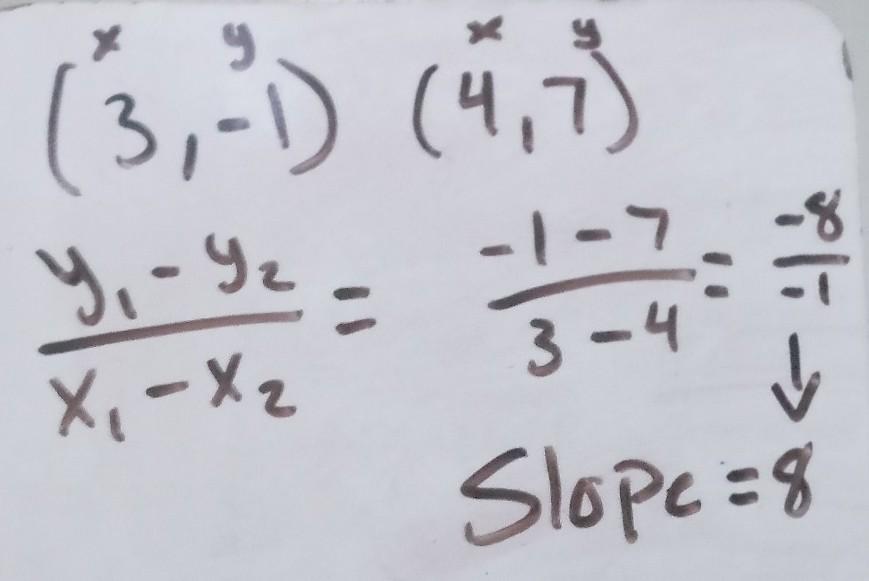 x y x y
(3,-1) (4,7)
y₁-y₂ / x₁-x₂ = -1-7 / 3-4 = -8 / -1
↓
Slope=8